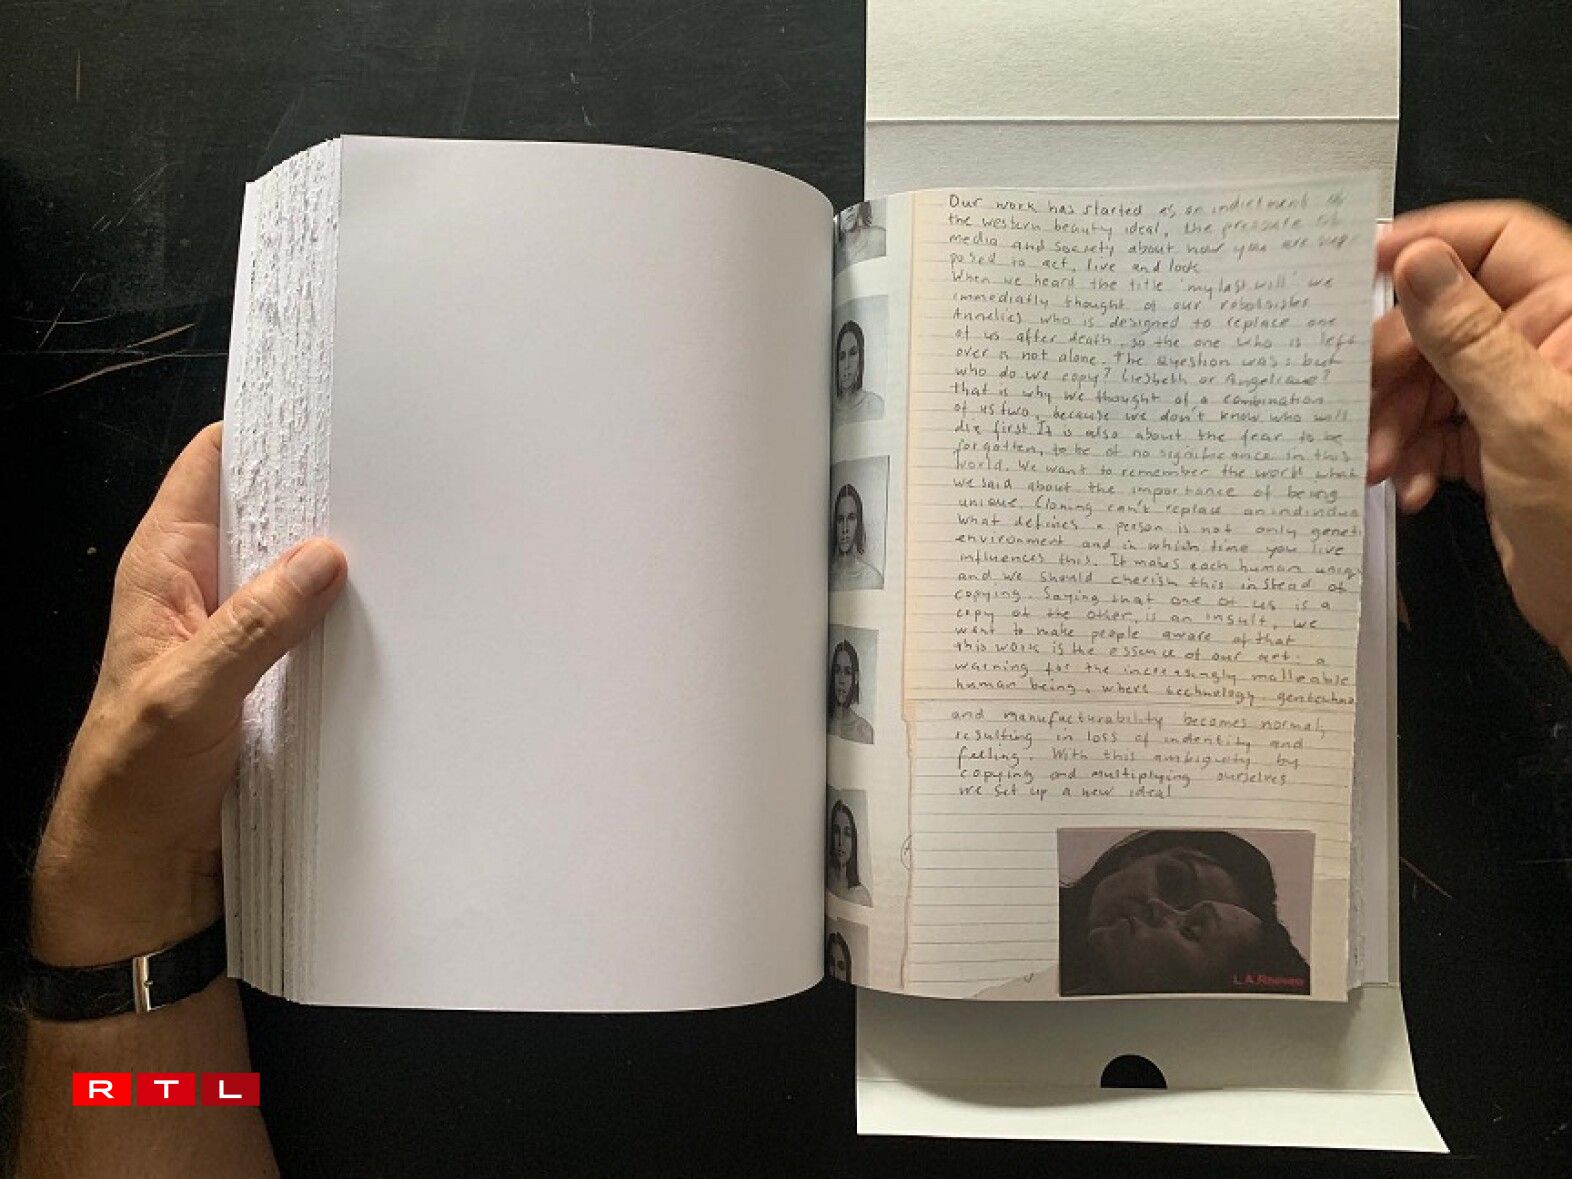 Our work has started as an indictment of
the western beauty ideal, the pressure of
media and society about how you are sup
posed to act, live and look
When we heard the title 'my last will' we
immediatly thought of our robotsister
Annelies who is designed to replace one
of us after death, so the one who is left
over is not alone. The question was: but
who do we copy? Liesbeth or Angelique?
that is why we thought of a combination
of us two, because we don't know who will
die first. It is also about the fear to be
forgotten, to be of no significance in this
world. We want to remember the world what
we said about the importance of being
unique. Cloning can't replace an individua
what defines a person is not only geneti
environment and in which time you live
influences this. It makes each human uniq
and we should cherish this instead of
copying. Saying that one of us is a
copy of the other, is an insult, we
want to make people aware of that
this work is the essence of our art. a
warning for the increasingly malleable
human being, where technology
and manufacturability becomes normal,
resulting in loss of indentity and
feeling. With this ambiguity by
copying and multiplying ourselves
we set up a new ideal
L.A. Raeven
RTL